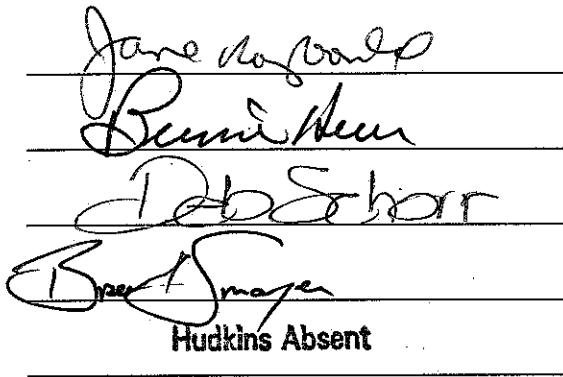 Jane Raybould
Bernie Heier
Deb Schorr
Brent Smoyer
Hudkins Absent